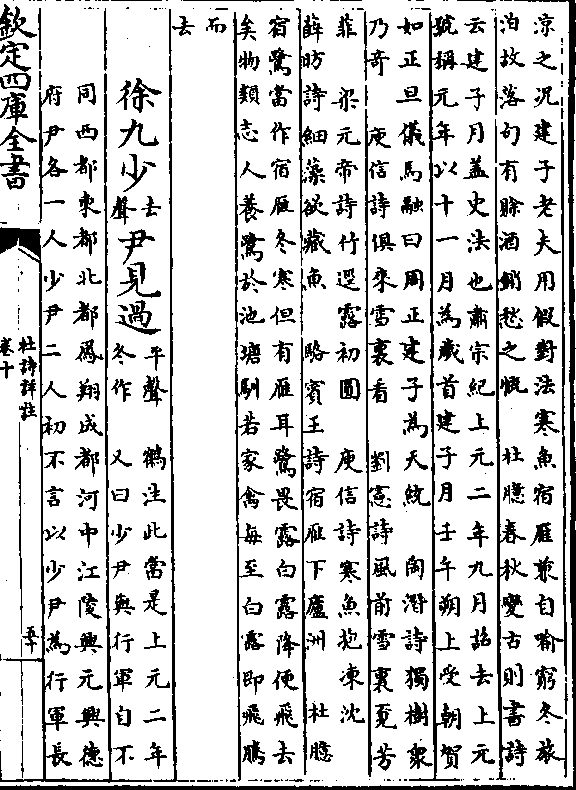 涼之況建子老夫用假對法寒魚宿雁兼自喻窮冬旅
泊故落句有賒酒銷愁之慨　杜臆春秋變古則書詩
云建子月盖史法也肅宗紀上元二年九月詔去上元
號稱元年以十一月為歲首建子月壬午朔上受朝賀
如正旦儀馬融曰周正建子為天統　陶潛詩獨樹衆
乃奇　庾信詩俱來雪裏看　劉憲詩風前雪裏覓芳
菲　梁元帝詩竹逕露初圓　庾信詩寒魚抱凍沈
薛昉詩細藻欲藏魚　駱賓王詩宿雁下廬洲　杜臆
宿鷺當作宿雁冬寒但有雁耳鷺畏露白露降便飛去
矣物類志人養鷺於池塘馴若家禽每至白露即飛騰
而
去
徐九少去聲尹見過平聲　鶴注此當是上元二年
冬作　又曰少尹與行軍自不
同西都東都北都鳳翔成都河中江陵興元興德
府尹各一人少尹二人初不言以少尹為行軍長
欽定四庫全書
杜詩詳註
卷十